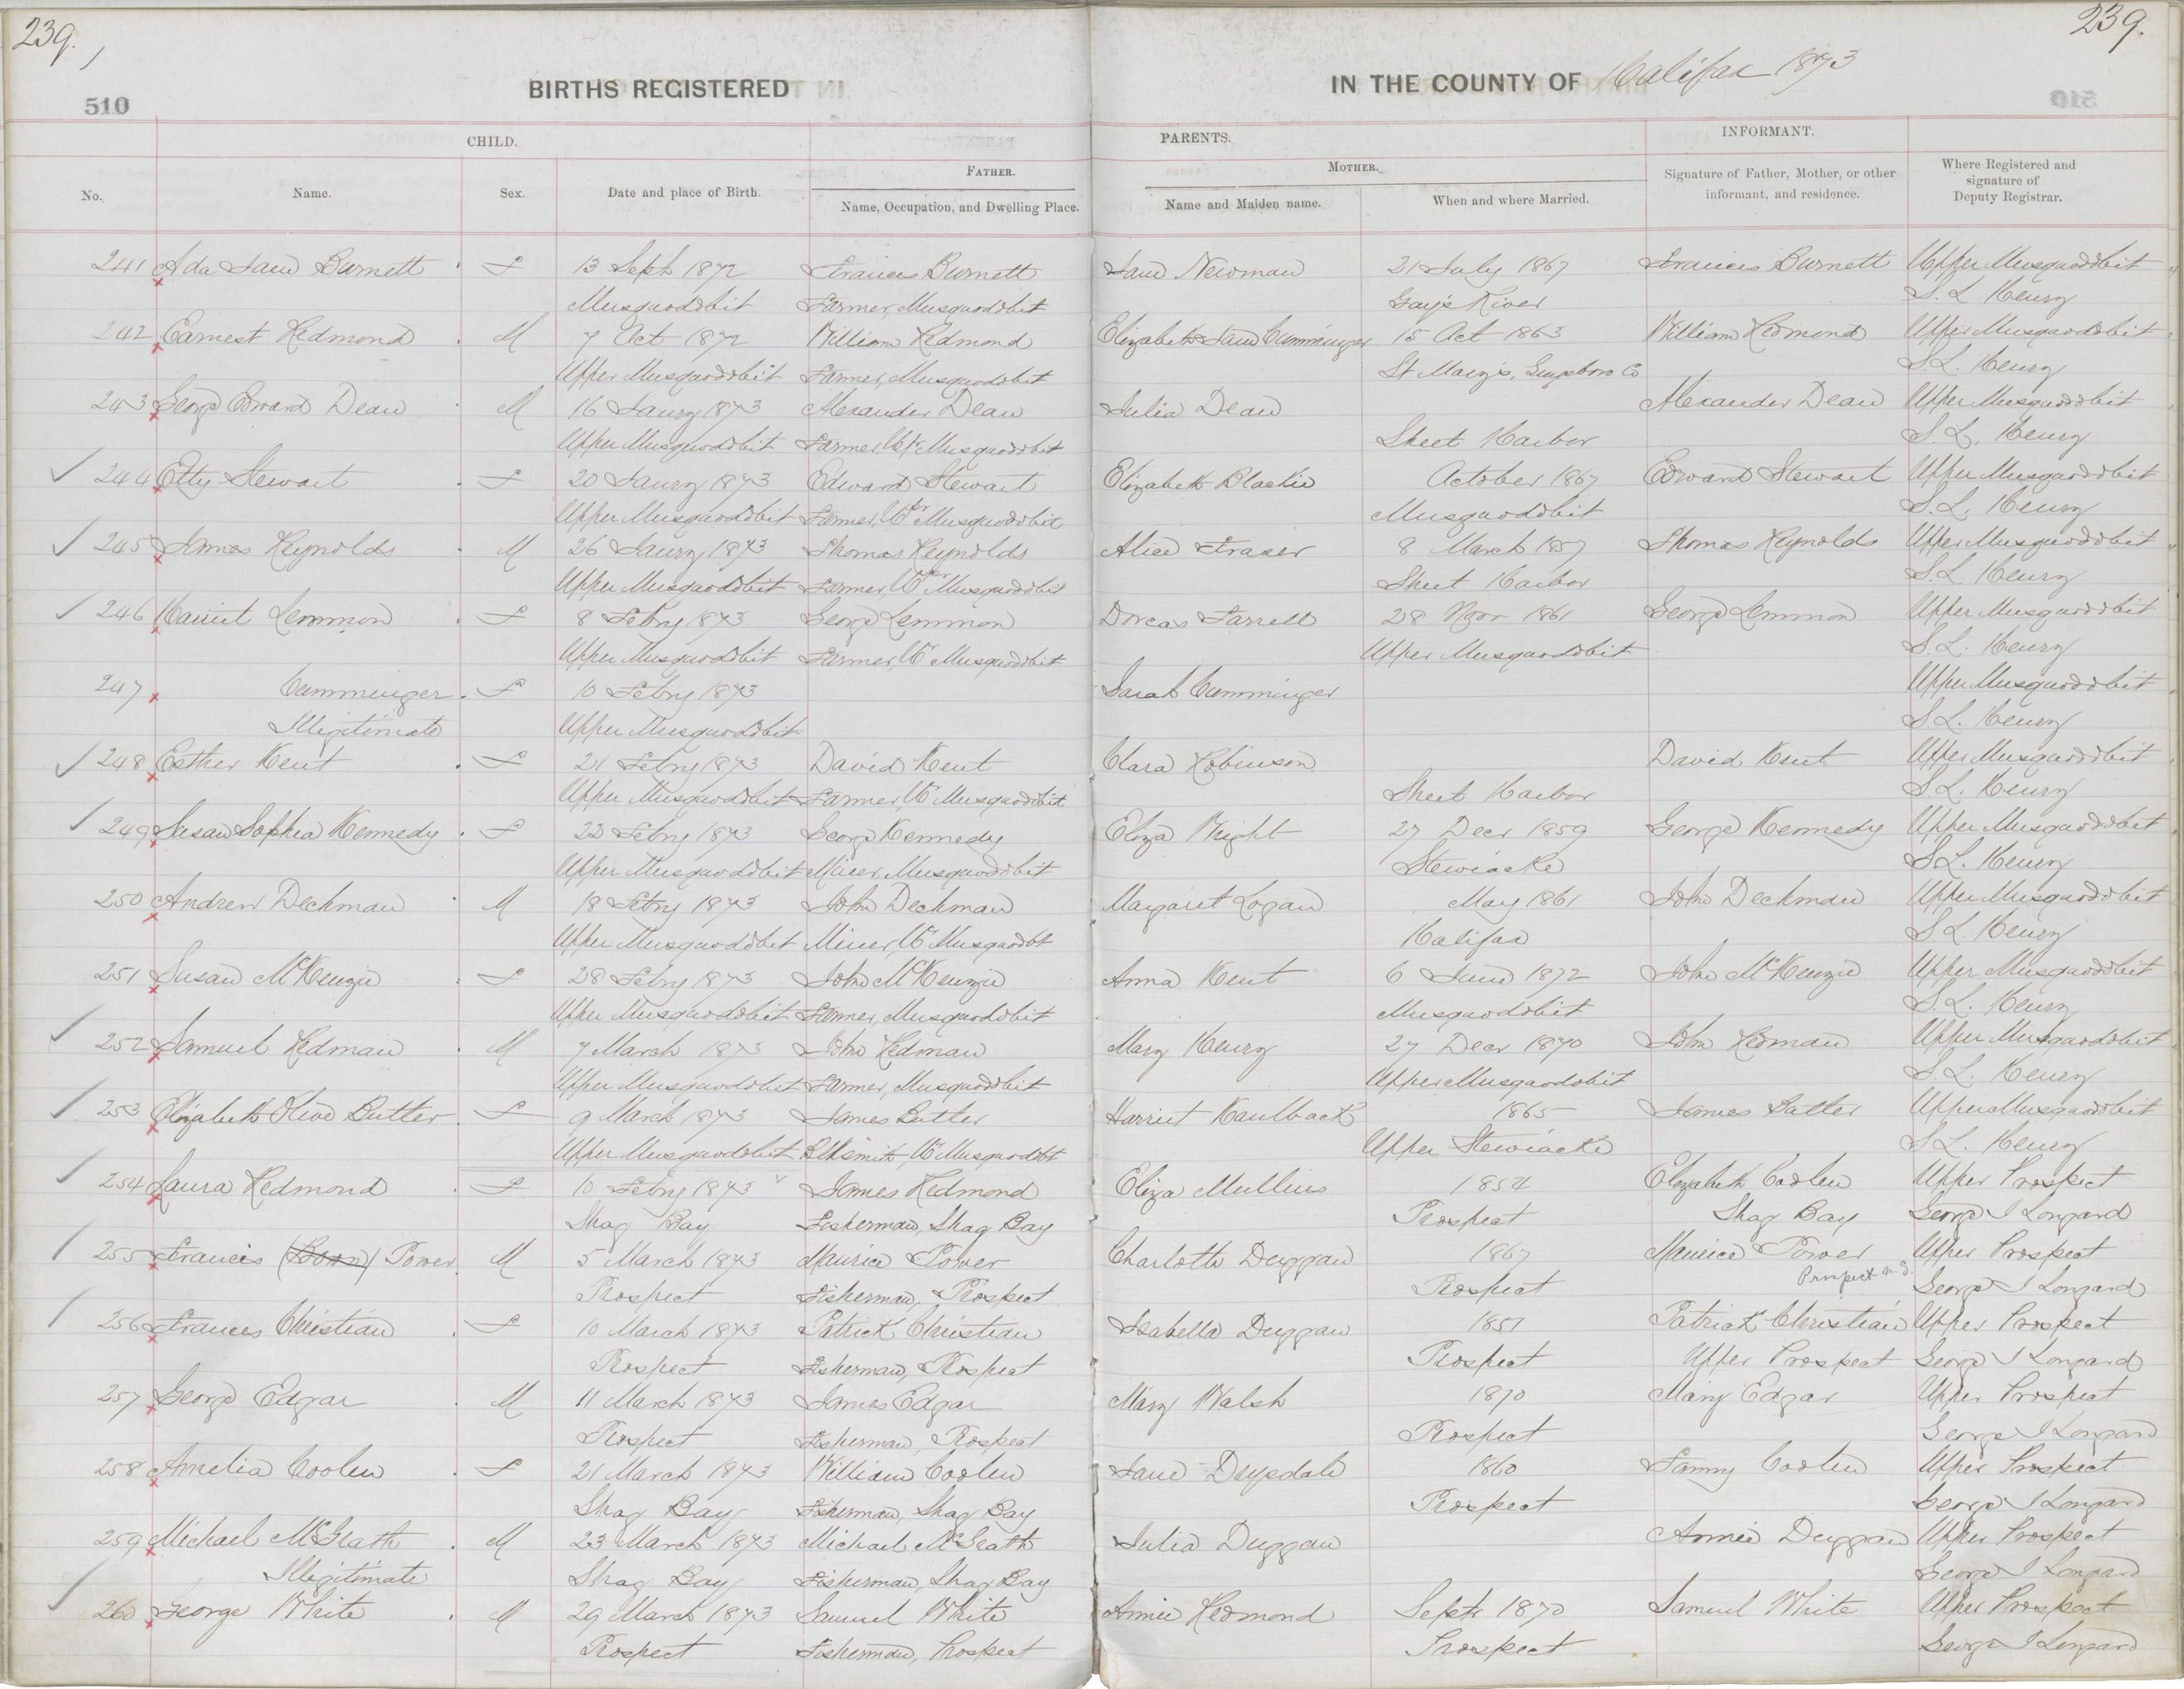 239.
239.
510
BIRTHS REGISTERED IN THE COUNTY OF Halifax 1873
CHILD. PARENTS. INFORMANT.
No. Name. Sex. Date and place of Birth. FATHER. Name, Occupation, and Dwelling Place. MOTHER. Name and Maiden name. When and where Married. Signature of Father, Mother, or other informant, and residence. Where Registered and signature of Deputy Registrar.
241 Ada Jane Burnett F 13 Sept 1872 Francis Burnett Jane Newman 21 July 1867 Francis Burnett Upper Musquodobit
Musquodobit Farmer, Musquodobit Gay's River S. L. Henry
242 Earnest Redmond M 7 Oct 1872 William Redmond Elizabeth Jane Cumminger 15 Oct 1863 William Redmond Upper Musquodobit
Upper Musquodobit Farmer, Musquodobit St Mary's, Guysboro Co S. L. Henry
243 George Edward Dean M 16 Jany 1873 Alexander Dean Julia Dean Alexander Dean Upper Musquodobit
Upper Musquodobit Farmer, Upr Musquodobit Sheet Harbor S. L. Henry
244 Etty Stewart F 20 Jany 1873 Edward Stewart Elizabeth Blackie October 1867 Edward Stewart Upper Musquodobit
Upper Musquodobit Farmer, Upr Musquodobit Musquodobit S. L. Henry
245 James Reynolds M 26 Jany 1873 Thomas Reynolds Alice Fraser 8 March 1857 Thomas Reynolds Upper Musquodobit
Upper Musquodobit Farmer, Upr Musquodobit Sheet Harbor S. L. Henry
246 Harriet Lemmon F 8 Febry 1873 George Lemmon Dorcas Farrell 28 Novr 1861 George Lemmon Upper Musquodobit
Upper Musquodobit Farmer, Upr Musquodobit Upper Musquodobit S. L. Henry
247 Cumminger F 10 Febry 1873 Sarah Cumminger Upper Musquodobit
Illegitimate Upper Musquodobit S. L. Henry
248 Esther Kent F 21 Febry 1873 David Kent Clara Robinson David Kent Upper Musquodobit
Upper Musquodobit Farmer, Upr Musquodobit Sheet Harbor S. L. Henry
249 Susan Sophia Kennedy F 22 Febry 1873 George Kennedy Eliza Wright 27 Decr 1859 George Kennedy Upper Musquodobit
Upper Musquodobit Miner, Musquodobit Stewiacke S. L. Henry
250 Andrew Dechman M 18 Febry 1873 John Dechman Margaret Logan May 1861 John Dechman Upper Musquodobit
Upper Musquodobit Miner, Upr Musquodbt Halifax S. L. Henry
251 Susan McKenzie F 28 Febry 1873 John McKenzie Anna Kent 6 June 1872 John McKenzie Upper Musquodobit
Upper Musquodobit Farmer, Musquodobit Musquodobit S. L. Henry
252 Samuel Redman M 7 March 1873 John Redman Mary Henry 27 Decr 1870 John Redman Upper Musquodobit
Upper Musquodobit Farmer, Musquodobit Upper Musquodobit S. L. Henry
253 Elizabeth Olive Butler F 9 March 1873 James Butler Harriet Kaulback 1865 James Butler Upper Musquodobit
Upper Musquodobit Blksmith, Upr Musquodobt Upper Stewiacke S. L. Henry
254 Laura Redmond F 10 Febry 1873 James Redmond Eliza Mullins 1854 Elizabeth Coolen Upper Prospect
Shag Bay Fisherman, Shag Bay Prospect Shag Bay George I Longard
255 Francis (Born) Power M 5 March 1873 Maurice Power Charlotte Duggan 1867 Maurice Power Upper Prospect
Prospect Fisherman, Prospect Prospect Prospect n.s. George I Longard
256 Frances Christian F 10 March 1873 Patrick Christian Isabella Duggan 1851 Patrick Christian Upper Prospect
Prospect Fisherman, Prospect Prospect Upper Prospect George I Longard
257 George Edgar M 11 March 1873 James Edgar Mary Walsh 1870 Mary Edgar Upper Prospect
Prospect Fisherman, Prospect Prospect George I Longard
258 Amelia Coolen F 21 March 1873 William Coolen Jane Drysdale 1860 Fanny Coolen Upper Prospect
Shag Bay Fisherman, Shag Bay Prospect George I Longard
259 Michael McGrath M 23 March 1873 Michael McGrath Julia Duggan Annie Duggan Upper Prospect
Illegitimate Shag Bay Fisherman, Shag Bay George I Longard
260 George White M 29 March 1873 Samuel White Annie Redmond Septr 1870 Samuel White Upper Prospect
Prospect Fisherman, Prospect Prospect George I Longard